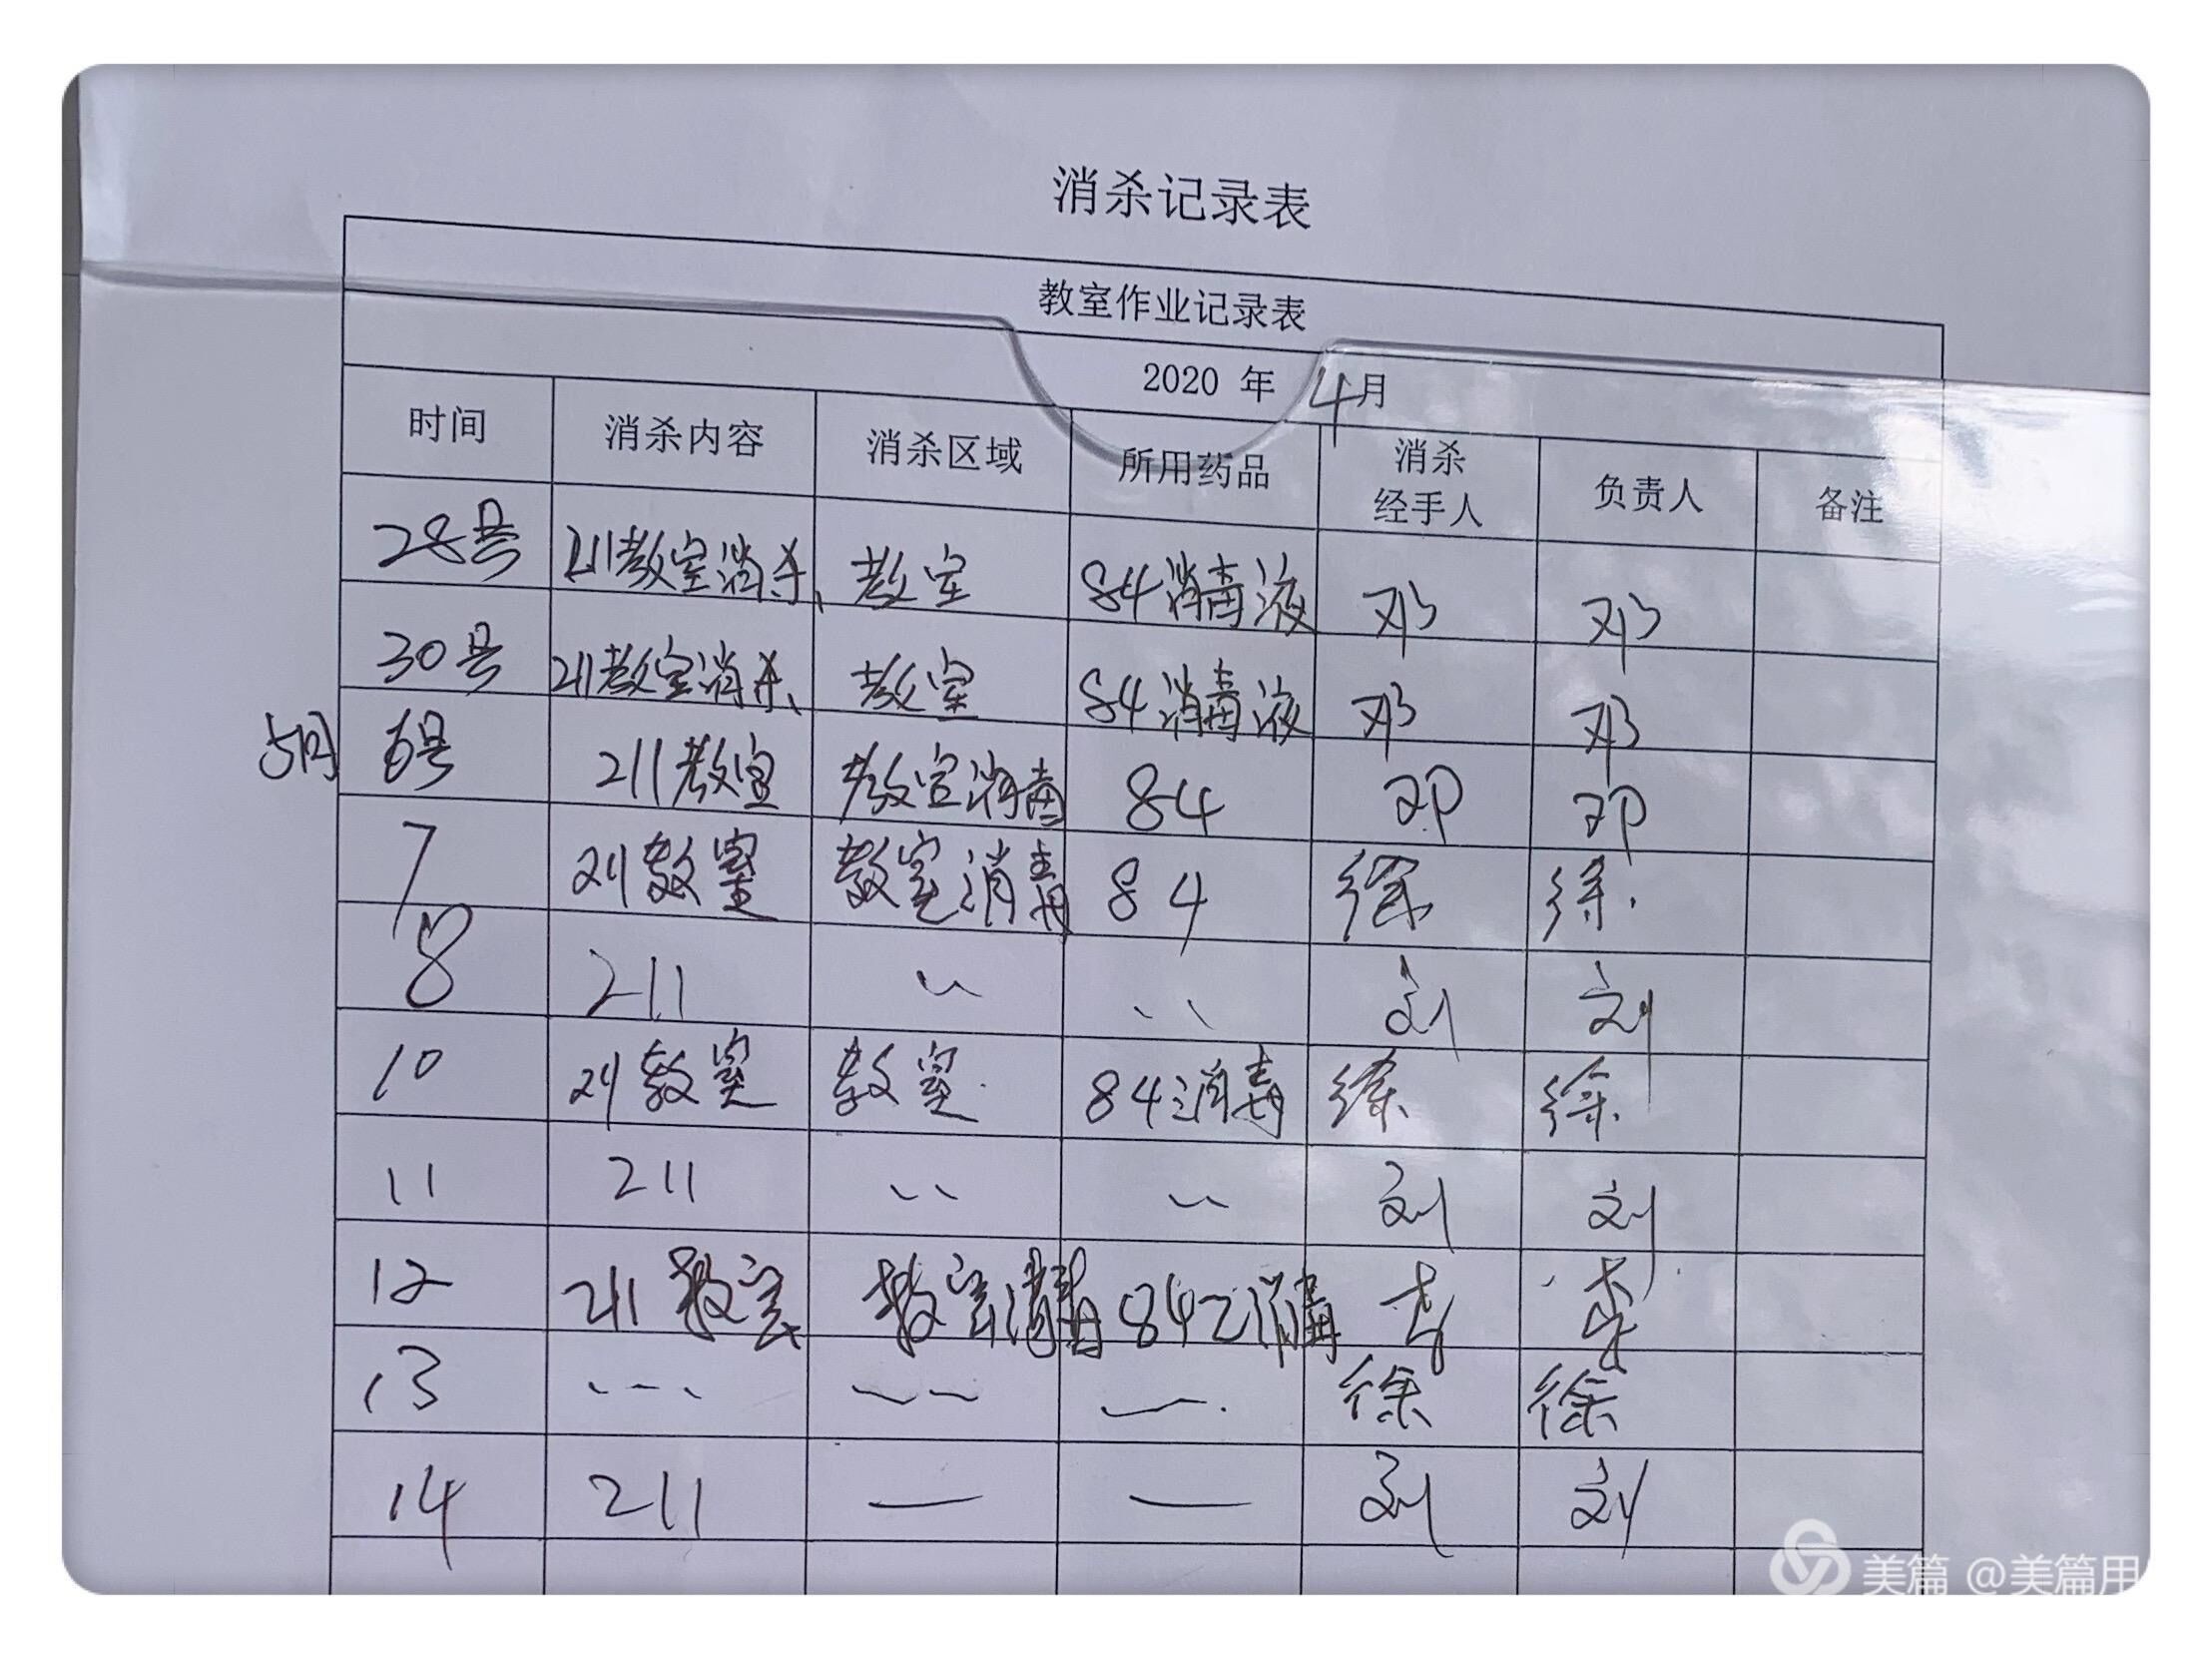 消杀记录表
教室作业记录表
2020 年 4月
时间 消杀内容 消杀区域 所用药品 消杀经手人 负责人 备注
28号 211教室消杀、 教室 84消毒液 邓 邓
30号 211教室消杀、 教室 84消毒液 邓 邓
5月 6号 211教室 教室消毒 84 邓 邓
7 211教室 教室消毒 84 徐 徐
8 211 〃 〃 刘 刘
10 211教室 教室 84消毒 徐 徐
11 211 〃 〃 刘 刘
12 211教室 教室消毒 84 消毒 李 李
13 徐 徐
14 211 — — 刘 刘
美篇 @美篇用